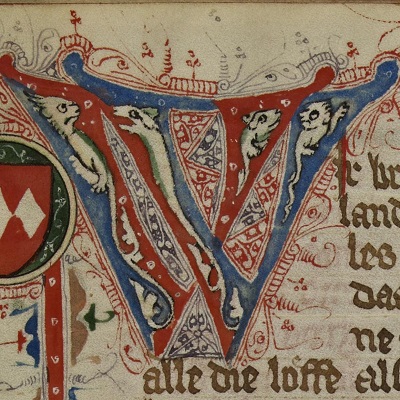 W
land
les
da
ne
alle die loffe all